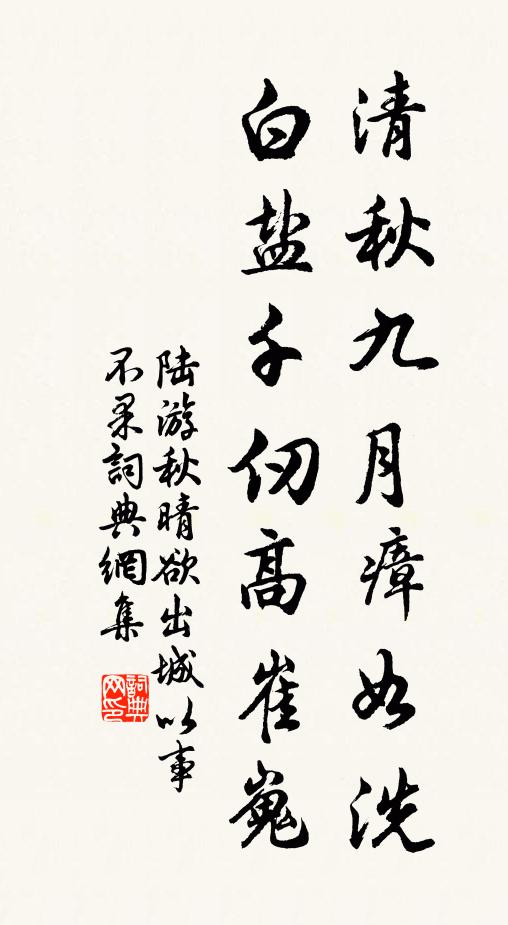 清秋九月瘴如洗
白盐千仞高崔嵬
陆游秋晴欲出城以事
不果詞典網集
詞典
网印